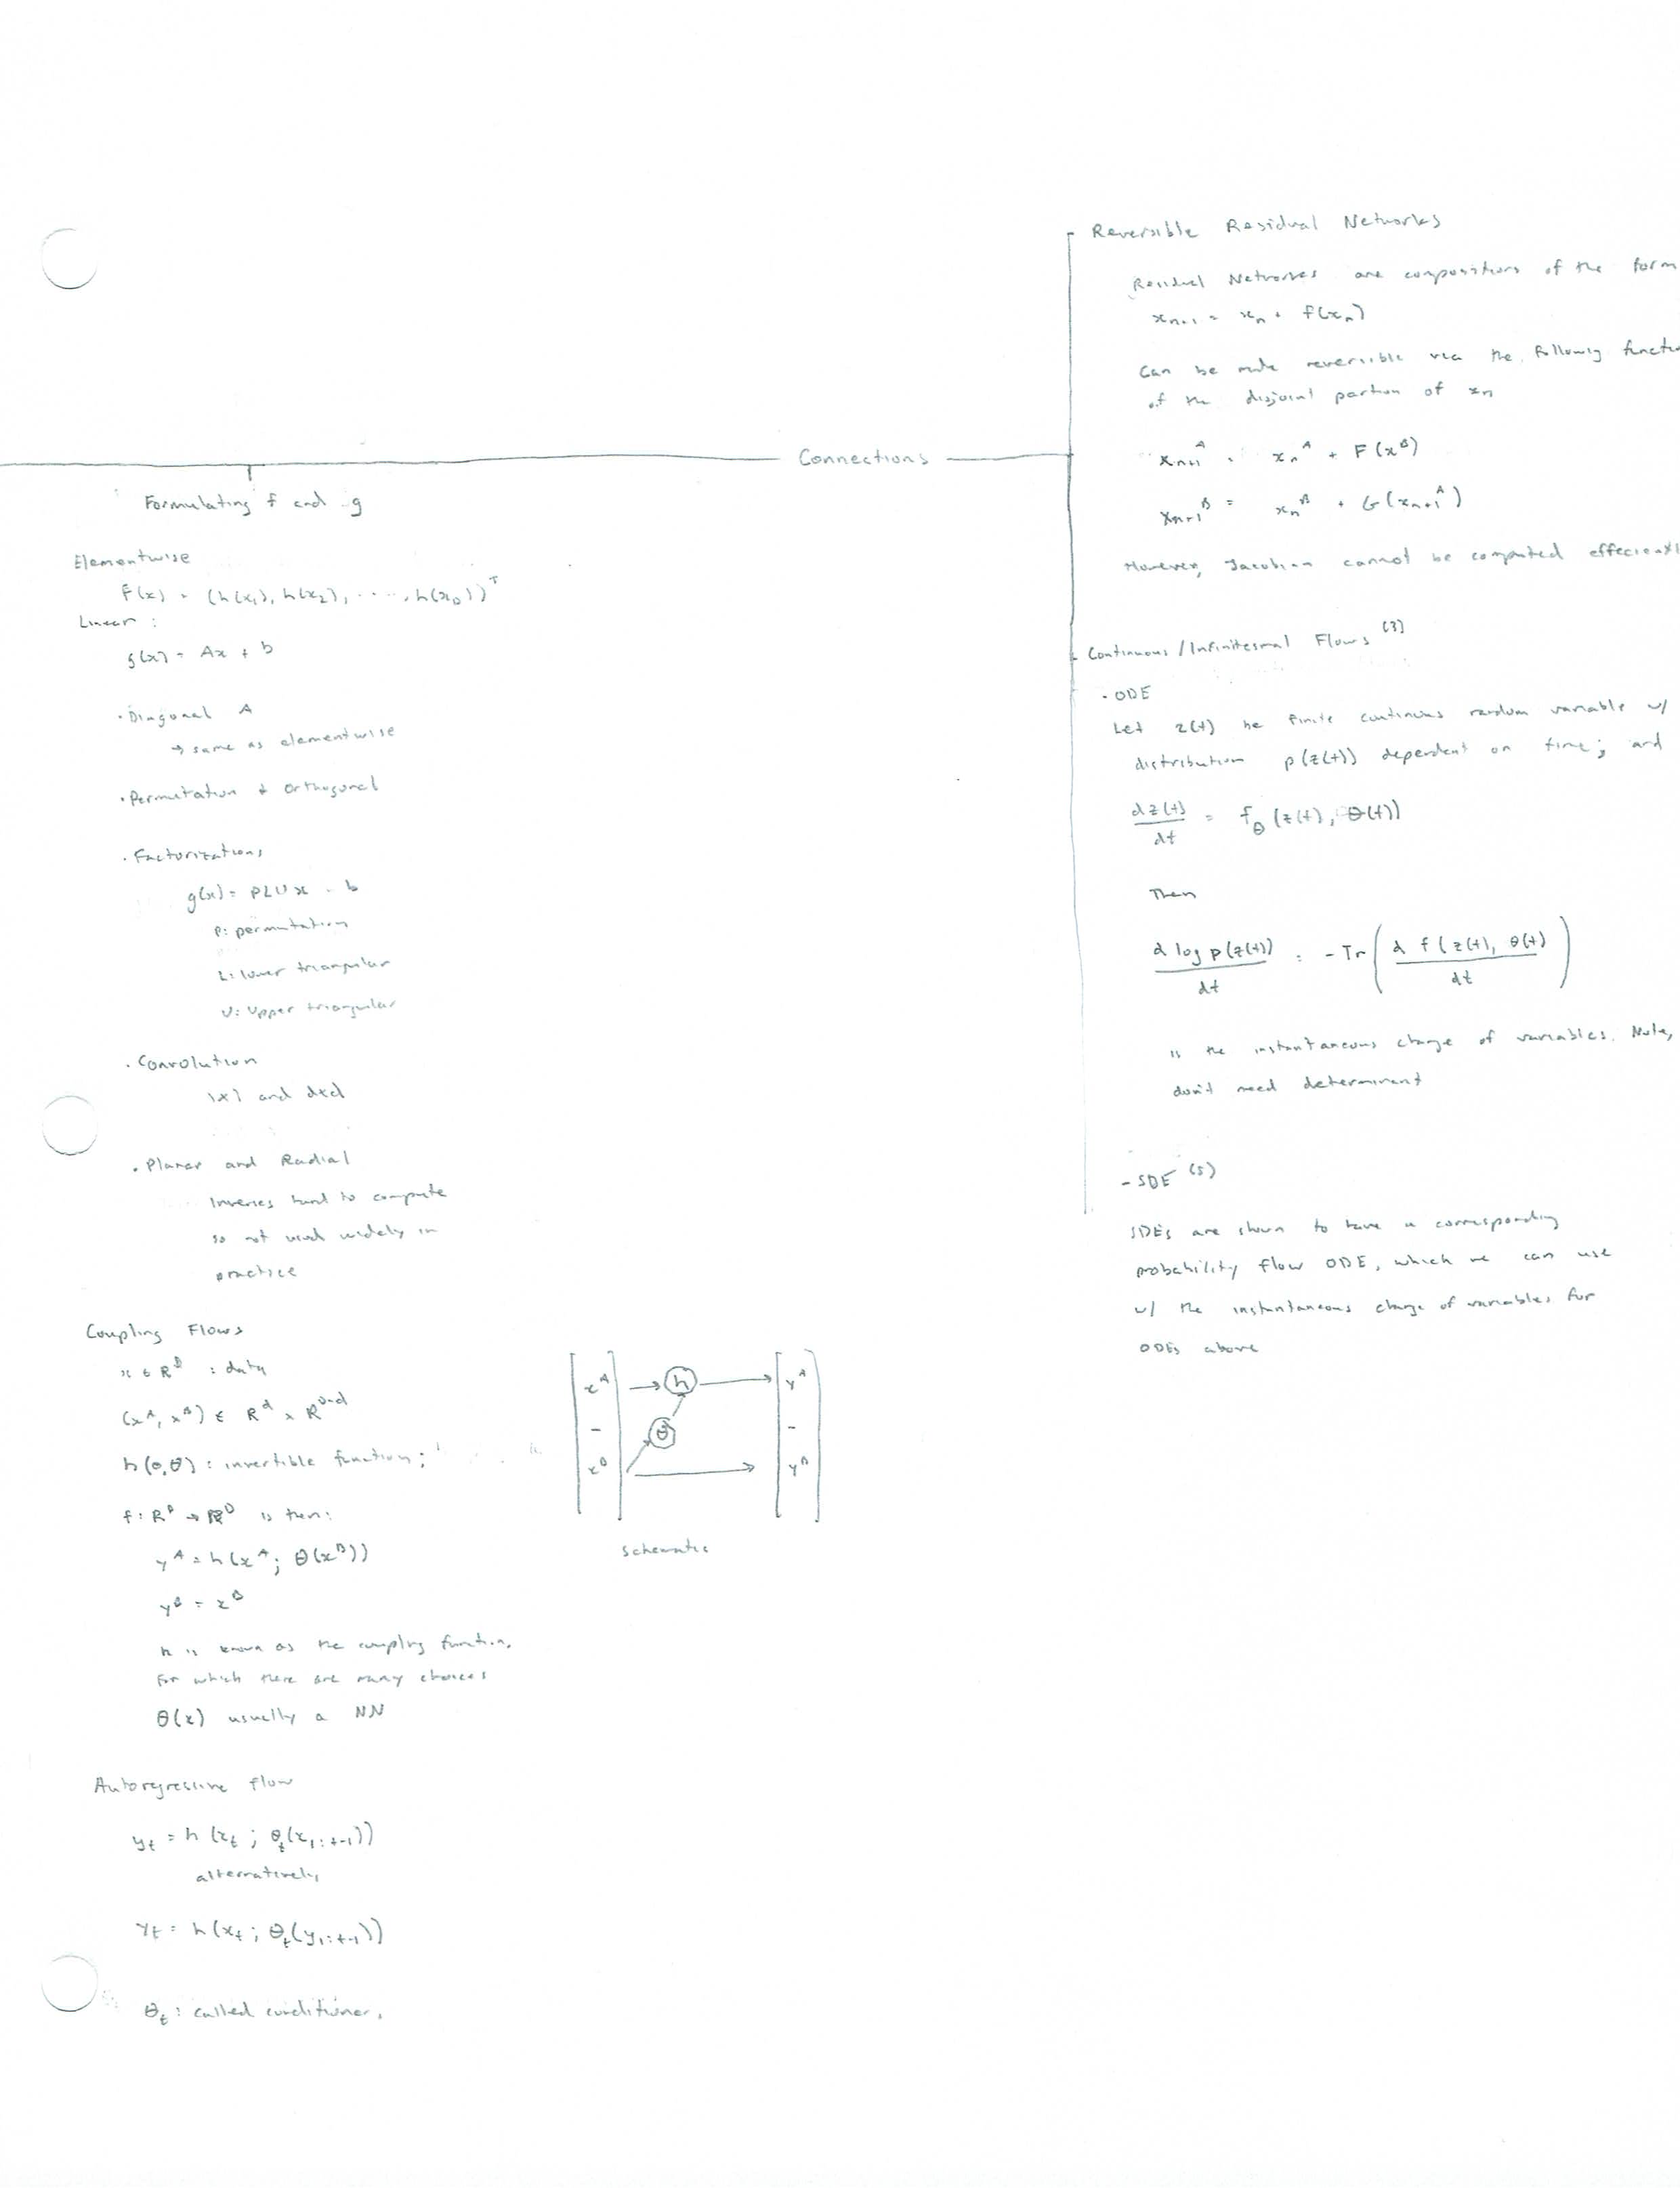 Connections
Formulating f and g
Elementwise
f(x) = (h(x₁), h(x₂), ....., h(x_D))ᵀ
Linear :
g(x) = Ax + b
· Diagonal A
→ same as elementwise
· Permutation + Orthogonal
· Factorizations
g(x) = PLUx + b
P: permutation
L: lower triangular
U: Upper triangular
· Convolution
1x1 and dxd
· Planar and Radial
Inverses hard to compute
so not used widely in
practice
Coupling Flows
x ∈ Rᴰ : data
(xᴬ, xᴮ) ∈ Rᵈ × Rᴰ⁻ᵈ
h(o,θ) : invertible function;
f: Rᴰ → Rᴰ is then:
yᴬ = h(xᴬ; θ(xᴮ))
yᴮ = xᴮ
h is known as the coupling function,
for which there are many choices
θ(x) usually a NN
xᴬ → h → yᴬ
- θ -
xᴮ → yᴮ
Schematic
Autoregressive flow
y_t = h(x_t ; θ_t(x_1:t-1))
alternatively
y_t = h(x_t ; θ_t(y_1:t-1))
θ_t : called conditioner.
Reversible Residual Networks
Residual Networks are compositions of the form
x_n+1 = x_n + f(x_n)
Can be made reversible via the following
of the disjoint partion of x_n
x_n+1ᴬ = x_nᴬ + F(xᴮ)
x_n+1ᴮ = x_nᴮ + G(x_n+1ᴬ)
However, Jacobian cannot be computed
Continuous / Infinitesmal Flows (3)
- ODE
Let z(t) be finite continuous random variable w/
distribution p(z(t)) dependent on time; and
dz(t)/dt = f_θ(z(t), θ(t))
Then
d log p(z(t))/dt = -Tr( d f(z(t), θ(t))/dt )
is the instantaneous change of variables. Note,
don't need determinant
- SDE (5)
SDEs are shown to have a corresponding
probability flow ODE, which we can use
w/ the instantaneous change of variables for
ODEs above